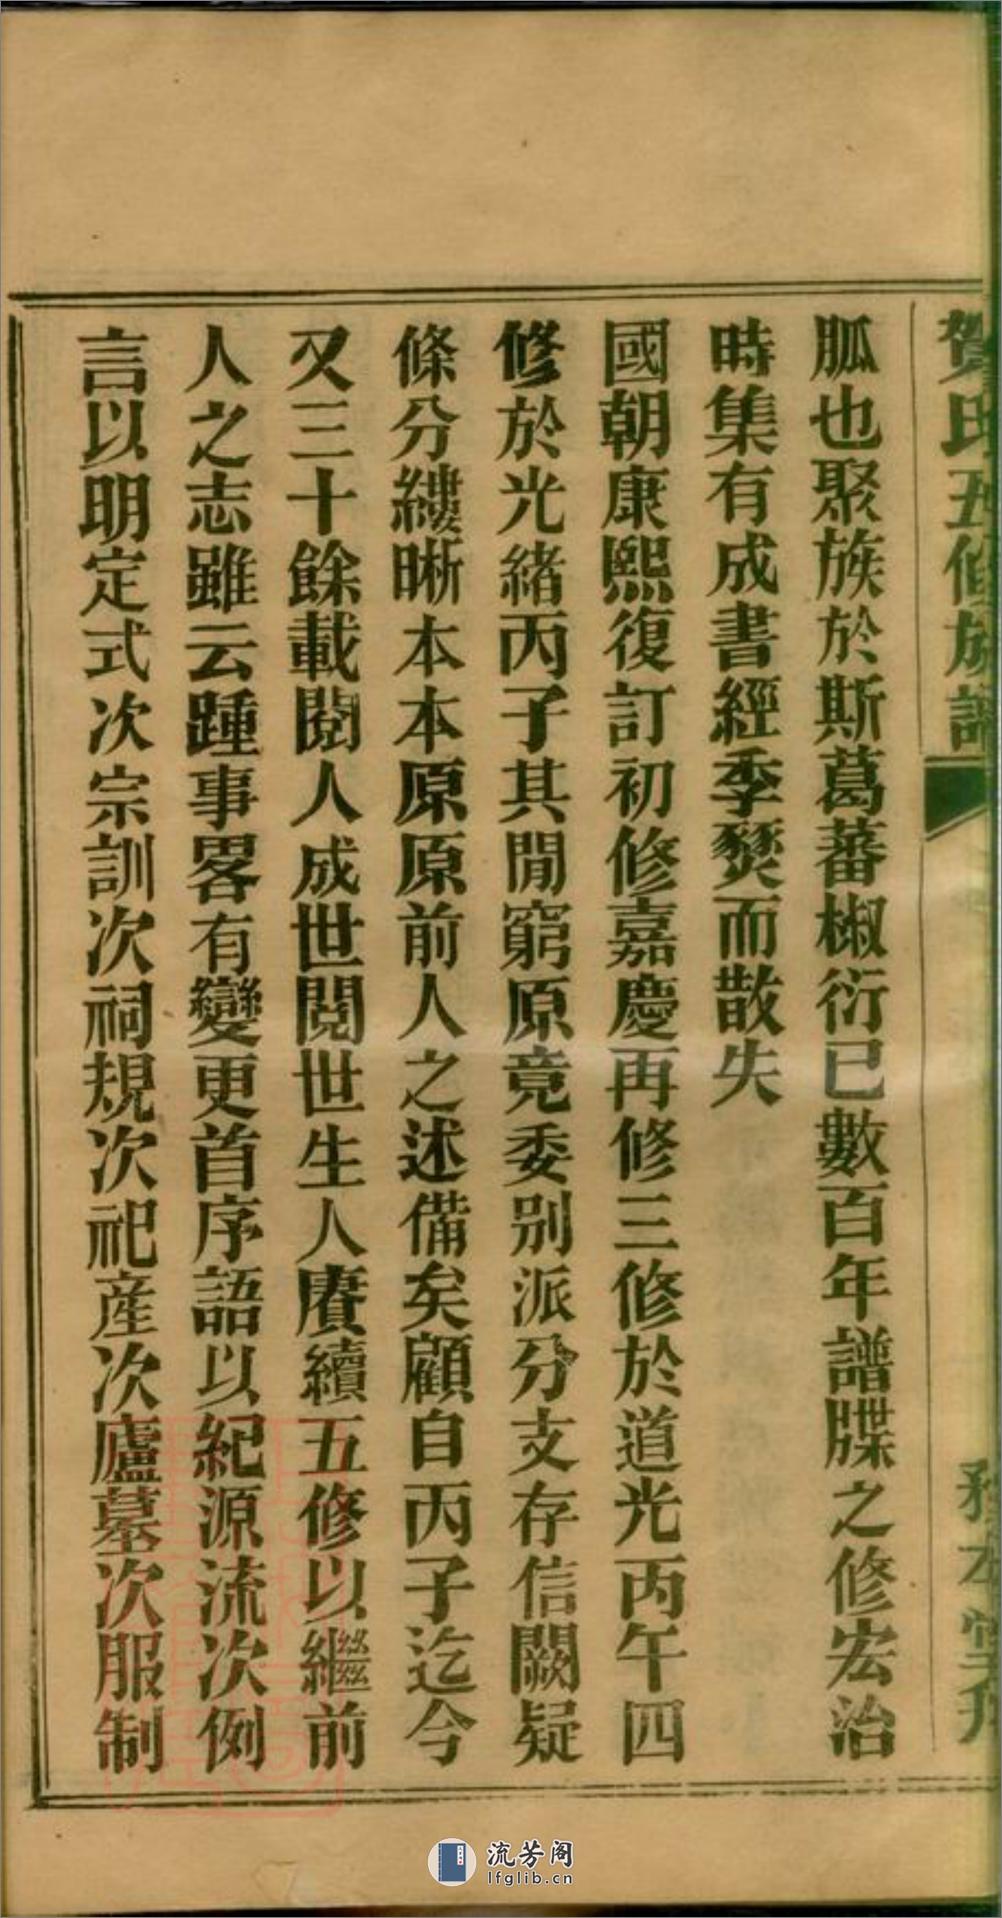 賀氏五修族譜
胍也聚族於斯葛蕃椒衍已數百年譜牒之修宏治
時集有成書經季燹而散失
國朝康熙復訂初修嘉慶再修三修於道光丙午四
修於光緒丙子其閒窮原竟委別派分支存信闕疑
條分縷晰本本原原前人之述備矣顧自丙子迄今
又三十餘載閱人成世閱世生人賡續五修以繼前
人之志雖云踵事畧有變更首序語以紀源流次例
言以明定式次宗訓次祠規次祀產次廬墓次服制
流芳阁
lfglib.cn